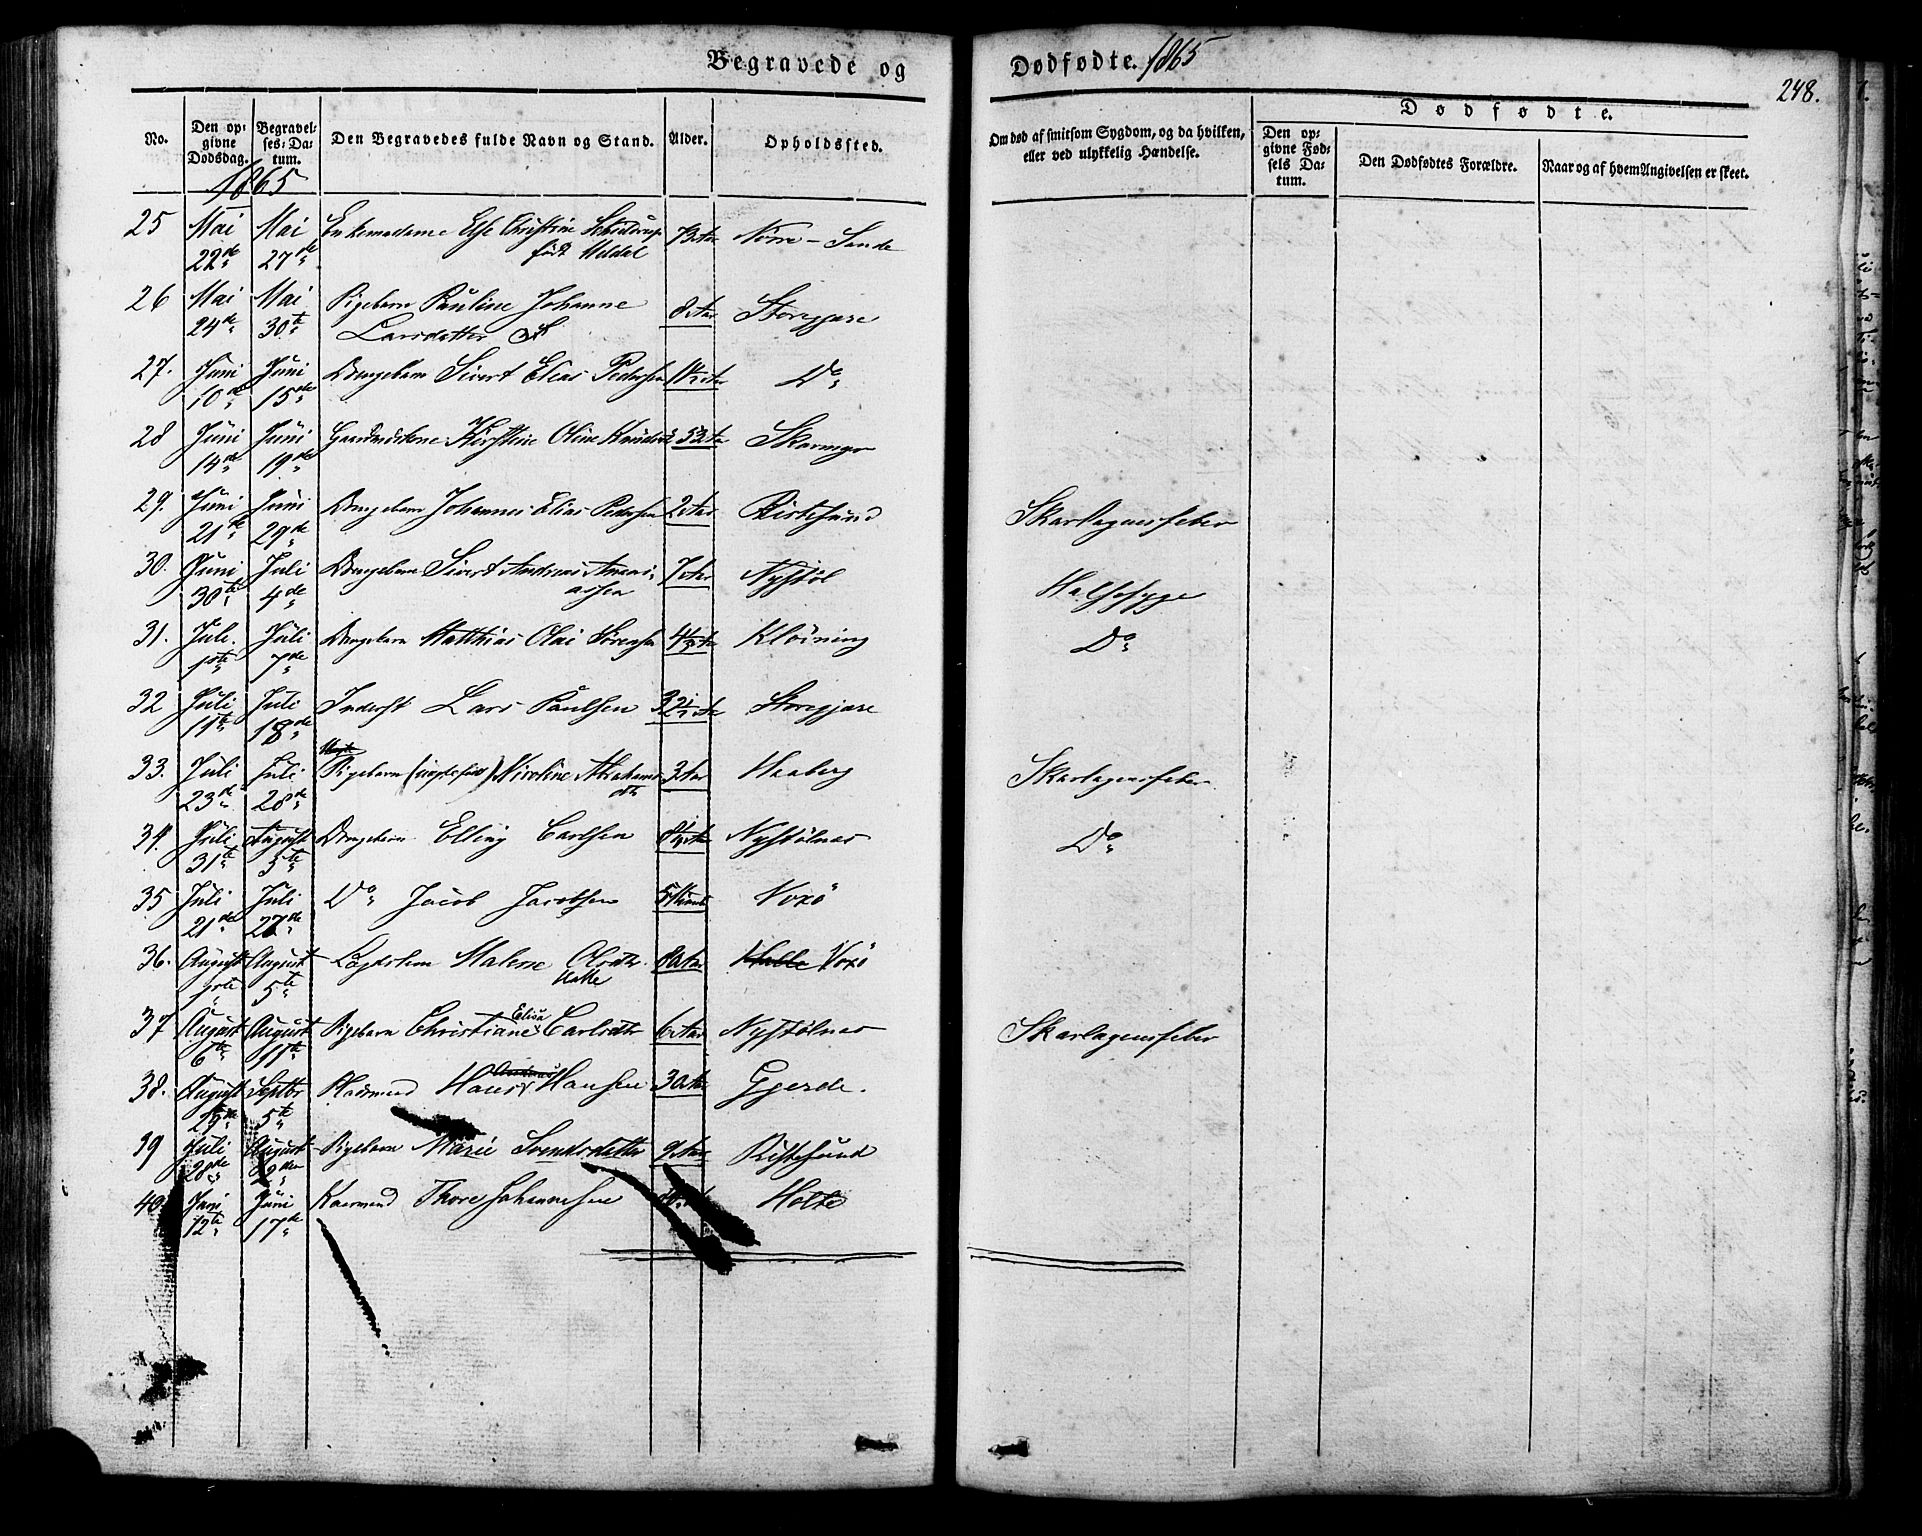 Begravede og Dødfødte. 1865
248.
No. Den opgivne Dødsdag. Begravelses-Datum. Den Begravedes fulde Navn og Stand. Alder. Opholdssted. Om død af smitsom Sygdom, og da hvilken, eller ved ulykkelig Hændelse.
Dødfødte.
Den opgivne Fødsels Datum. Den Dødfødtes Forældre. Naar og af hvem Angivelsen er skeet.
1865
25 Mai 22de Mai 27de Enkemadame Else Christine
født Weldal 73 Aar Nörre-Sande
26 Mai 24de Mai 30te Pigebarn Pauline Johanne
Larsdatter 8 Aar Storegjære
27. Juni 10de Juni 15de Drengebarn Sivert Elias Pedersen 1½ Aar Do
28 Juni 14de Juni 19de Kirstine Oline 53 Aar
29. Juni 21de Juni 29de Drengebarn Johannes Elias Pedersen 2 Aar Skarlagensfeber
30. Juni 30te Juli 4de Drengebarn Sivert Andreas Ananiassen 7 Aar Nystöl Halssyge
31. Juli 1ste Juli 7de Drengebarn Matthias Olai Sörensen 4½ Aar Klöining Do
32 Juli 11te Juli 18de Inderst Lars Paulsen Storegjære
33. Juli 23de Juli 28de Pigebarn Nicoline Abrahamsdtr 3 Aar Haaberg Skarlagensfeber
34. Juli 31te August 5te Drengebarn Elling Carlsen Nystölnæs Do
35 Juli 21de Juli 27de Do Jacob Jacobsen 5 Voxö
36. August 1ste August 5te Lægdslem Malene Olsdtr
80 Aar Voxö
37 August 6te August 11te Pigebarn Christiane Elisa Carlsdtr 6 Aar Nystölnæs Skarlagensfeber
38. August 29de Septbr 5te Hans Hansen 30 Aar Gjerde.
39 Juli 28de August Pigebarn Marie Svendsdatter 9 Aar
40 Juni 12te Juni 17de Kaarmand Thore Johannesen Holte